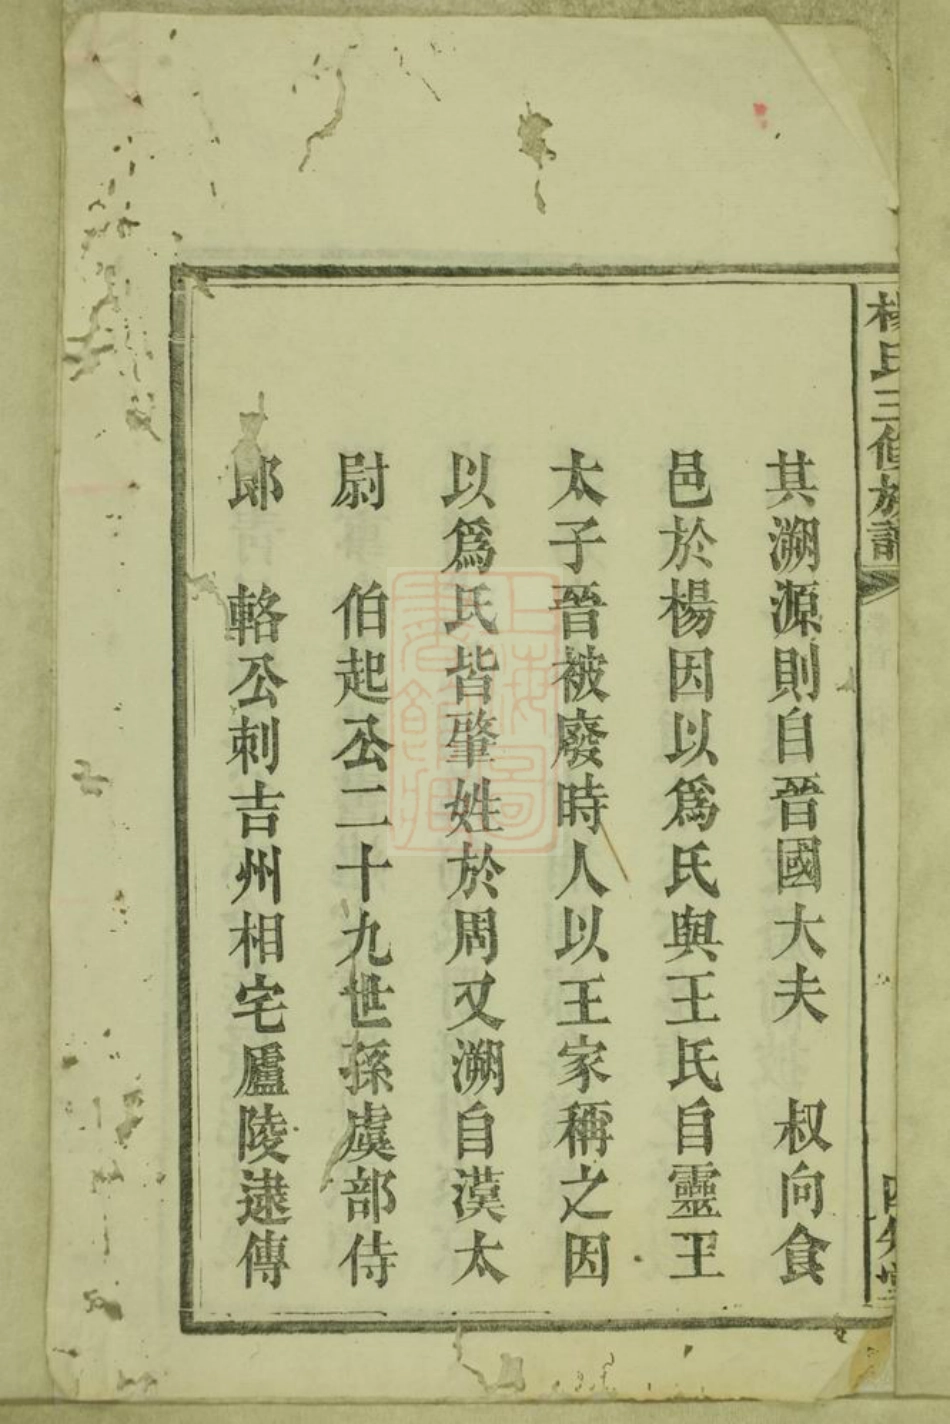 楊氏三修族譜
其溯源則自晉國大夫　叔向食
邑於楊因以爲氏與王氏自靈王
太子晉被廢時人以王家稱之因
以爲氏皆肇姓於周又溯自漠太
尉　伯起公二十九世孫虞部侍
郎　輅公刺吉州相宅廬陵逮傳